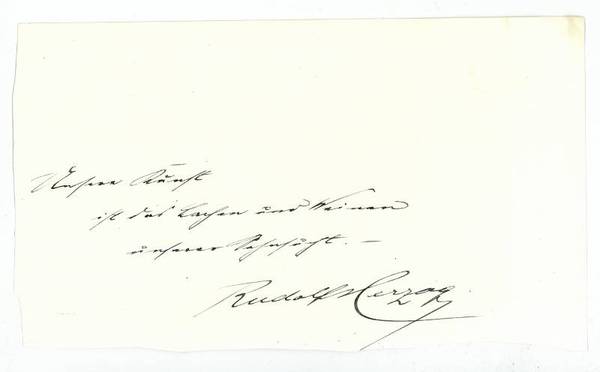 Unsere Kunst
ist das Lachen und Weinen
unserer Sehnsucht. –
Rudolf Herzog